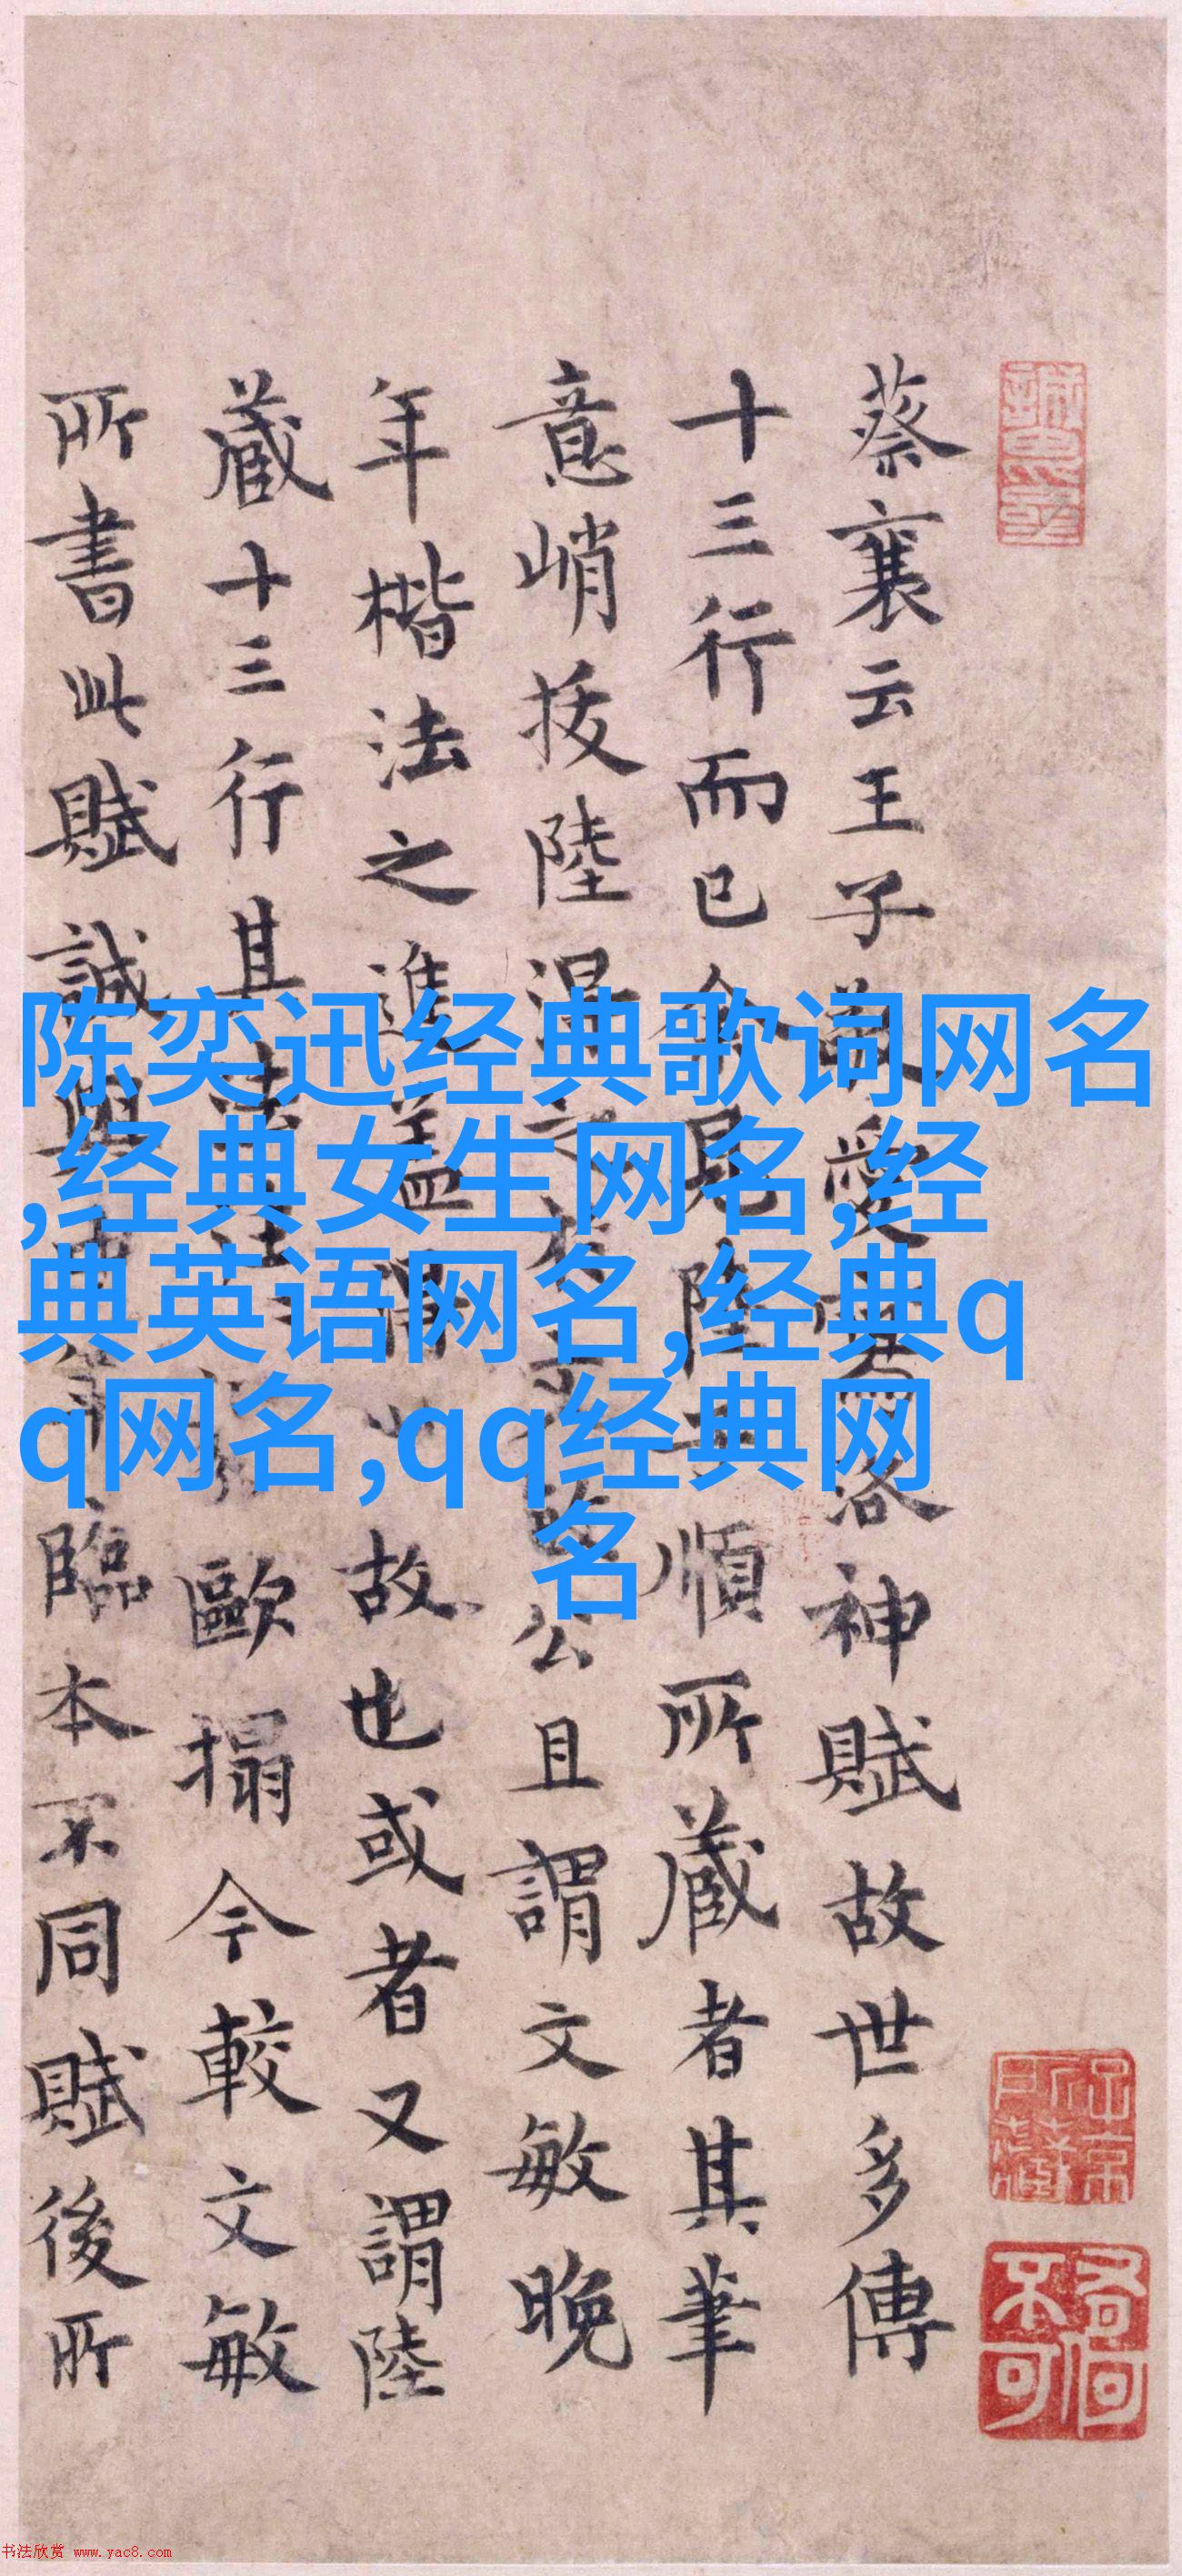 蔡襄云王子敬愛書洛神賦故世多傳
十三行而已今見陸子順所藏者其筆
意峭拔陸公且謂文敏晚
年楷法之進蓋謂此故也或者又謂陸
藏十三行其歐搨今較文敏
所書此賦誠與臨本不同賦後所
陈奕迅经典歌词网名
,经典女生网名,经
典英语网名,经典q
q网名,qq经典网
名
书法欣赏 www.yac8.com